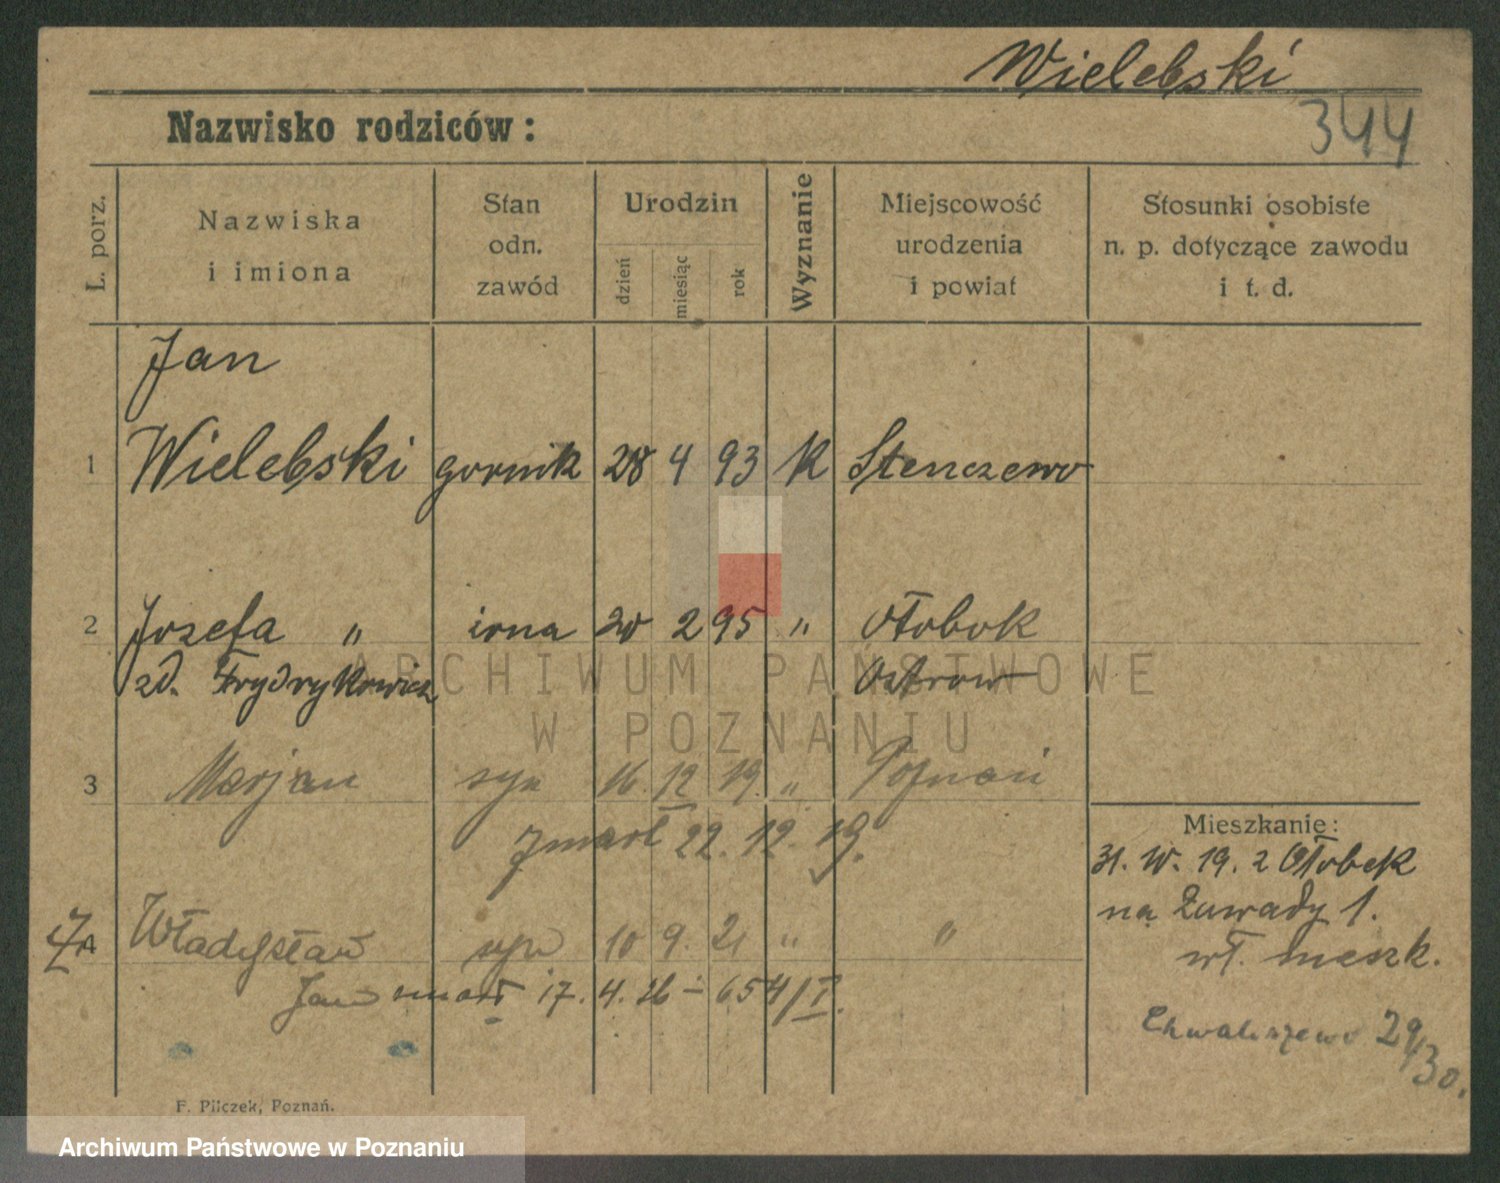 Wielebski
344
Nazwisko rodziców:
L. porz.
Nazwiska
i imiona
Stan
odn.
zawód
Urodzin
dzień
miesiąc
rok
Wyznanie
Miejscowość
urodzenia
i powiat
Stosunki osobiste
n. p. dotyczące zawodu
i t. d.
Jan
1 Wielebski gornik 28 4 93 K Stenczewo
2 Jozefa " żona 20 2 95 " Ołobok
zd. Frydrykowicz Ostrow
ARCHIWUM PAŃSTWOWE
W POZNANIU
3 Marjan syn 16. 12 19. " Poznań
Zmarł 22. 12. 19.
Mieszkanie:
31. 10. 19. z Ołobok
na Zawady 1.
wł. mieszk.
Władysław syn 10 9. 21 " "
Jan zmarł 17. 4. 26 – 654/I.
Chwaliszewo 29/30.
F. Pilczek, Poznań.
Archiwum Państwowe w Poznaniu